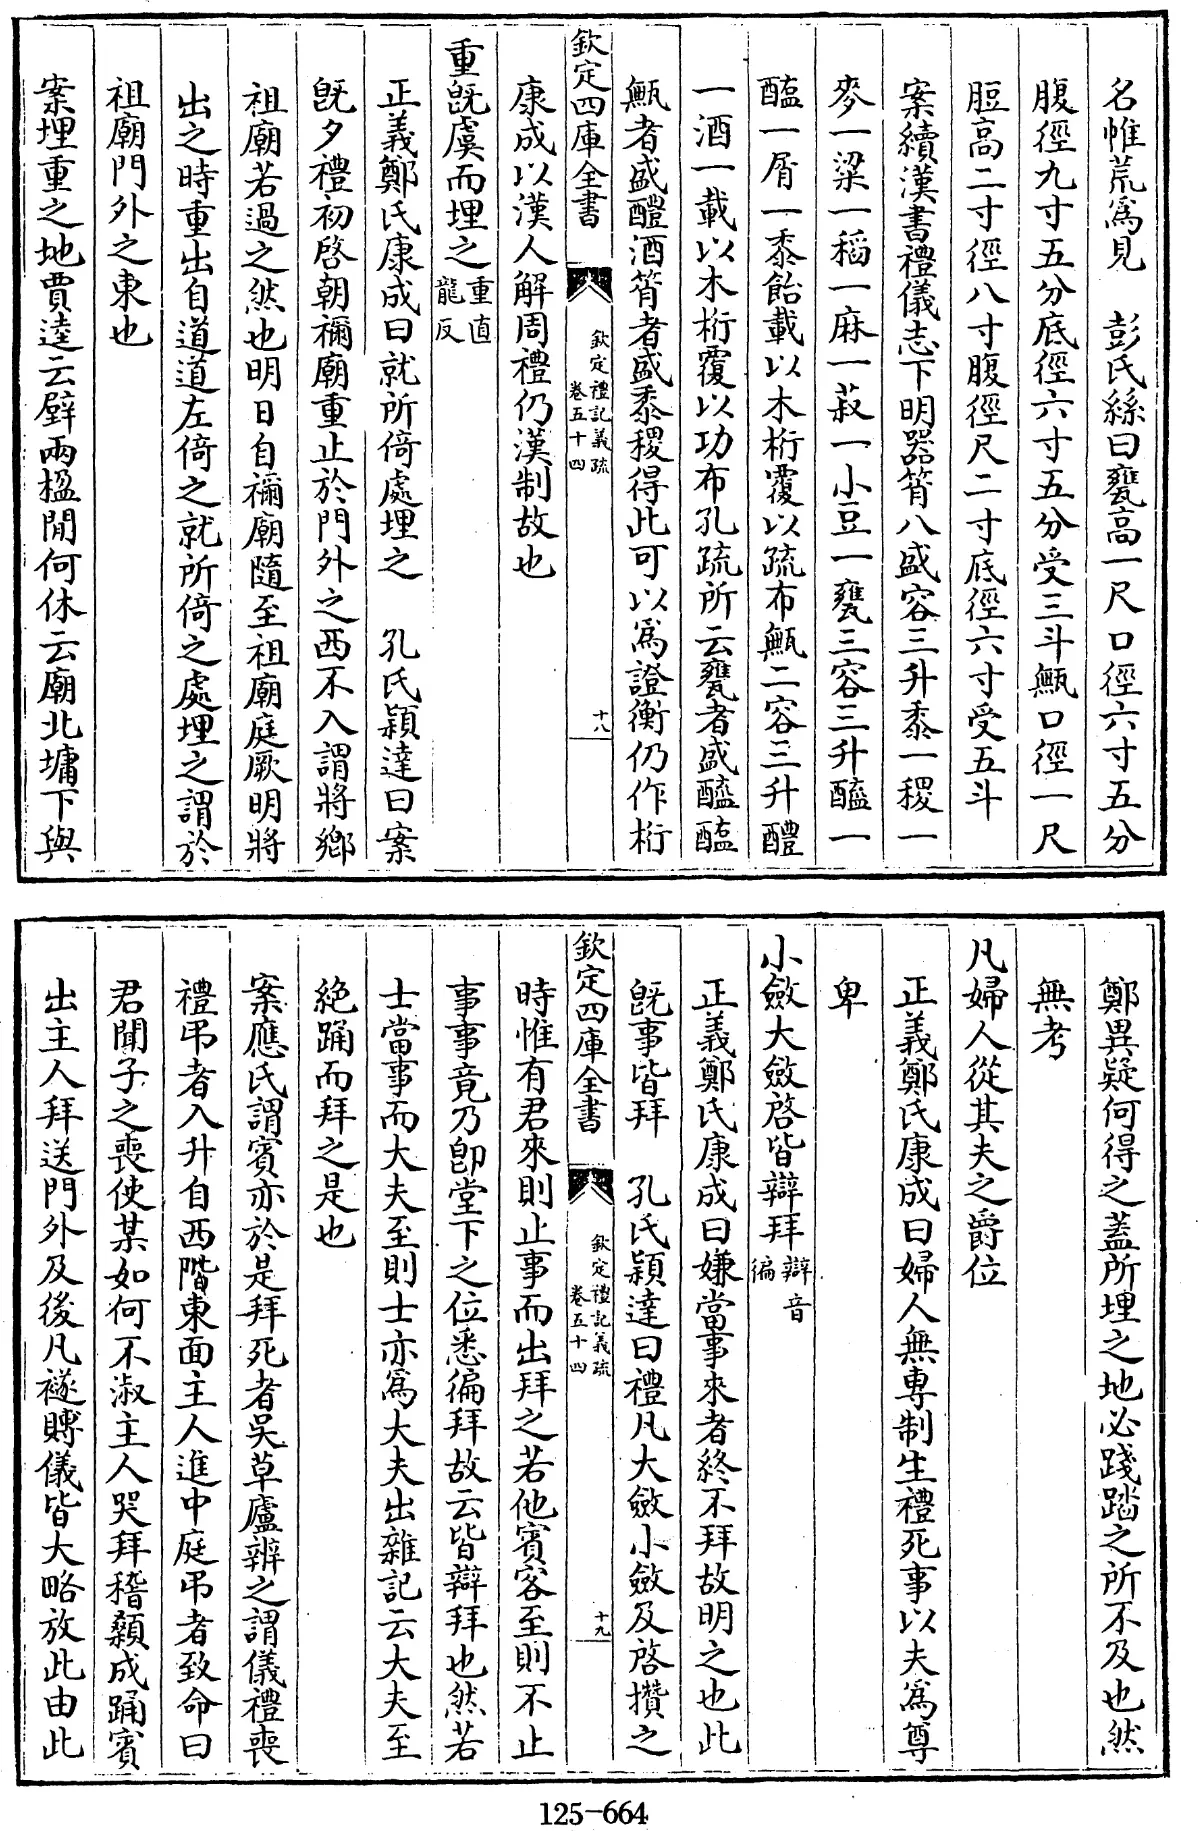 名惟荒爲見　彭氏絲曰甕高一尺口徑六寸五分
腹徑九寸五分底徑六寸五分受三斗甒口徑一尺
脰高二寸徑八寸腹徑尺二寸底徑六寸受五斗
案續漢書禮儀志下明器筲八盛容三升黍一稷一
麥一粱一稻一麻一菽一小豆一甕三容三升醯一
醢一屑一黍飴載以木桁覆以疏布甒二容三升醴
一酒一載以木桁覆以功布孔疏所云甕者盛醯醢
甒者盛醴酒筲者盛黍稷得此可以爲證衡仍作桁
欽定四庫全書　欽定禮記義疏　卷五十四　十八
康成以漢人解周禮仍漢制故也
重旣虞而埋之重直龍反
正義鄭氏康成曰就所倚處埋之　孔氏穎達曰案
旣夕禮初啓朝禰廟重止於門外之西不入謂將鄉
祖廟若過之然也明日自禰廟隨至祖廟庭厥明將
出之時重出自道道左倚之就所倚之處埋之謂於
祖廟門外之東也
案埋重之地賈逵云壁兩楹閒何休云廟北墉下與
鄭異疑何得之蓋所埋之地必踐踏之所不及也然
無考
凡婦人從其夫之爵位
正義鄭氏康成曰婦人無專制生禮死事以夫爲尊
卑
小斂大斂啓皆辯拜辯音徧
正義鄭氏康成曰嫌當事來者終不拜故明之也此
旣事皆拜　孔氏穎達曰禮凡大斂小斂及啓攢之
欽定四庫全書　欽定禮記義疏　卷五十四　十九
時惟有君來則止事而出拜之若他賓客至則不止
事事竟乃卽堂下之位悉徧拜故云皆辯拜也然若
士當事而大夫至則士亦爲大夫出雜記云大夫至
絶踊而拜之是也
案應氏謂賓亦於是拜死者吳草廬辨之謂儀禮喪
禮弔者入升自西階東面主人進中庭弔者致命曰
君聞子之喪使某如何不淑主人哭拜稽顙成踊賓
出主人拜送門外及後凡襚賻儀皆大略放此由此
125-664